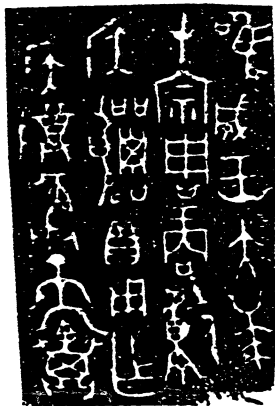 唯成王大𠦪
才宗周商獻
侯貝用乍
丁侯尊彝